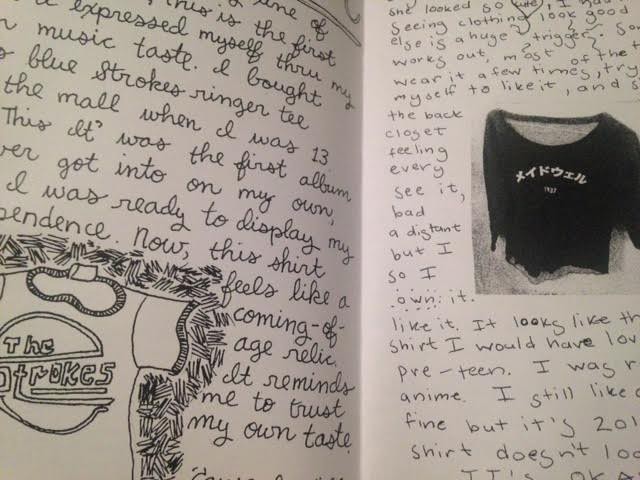 this is the first
expressed myself thru my
music taste. I bought
blue Strokes ringer tee
the mall when I was 13
This It" was the first album
ver got into on my own,
I was ready to display my
pendence. Now, this shirt
feels like a
coming-of-
age relic.
It reminds
me to trust
my own taste.
The
Strokes
she looked so cute, I had
Seeing clothing look good
else is a huge trigger. Som
works out, most of the
wear it a few times, try
myself to like it, and s
the back
closet
feeling
every
see it,
bad
a distant
but I
so I
own it.
メイドウェル
1937
like it. It looks like th
shirt I would have lov
pre-teen. I was r
anime. I still like
fine but it's 201
shirt doesn't loo
IT'S OKA